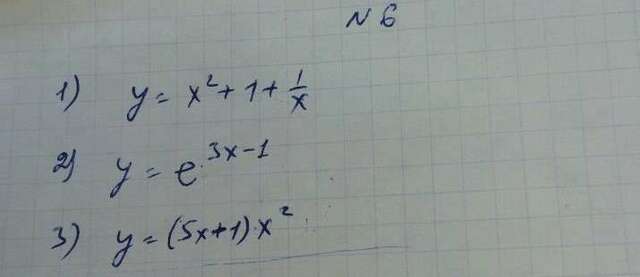 N 6
1) y = x² + 1 + 1/x
2) y = e^(3x-1)
3) y = (5x+1)·x²